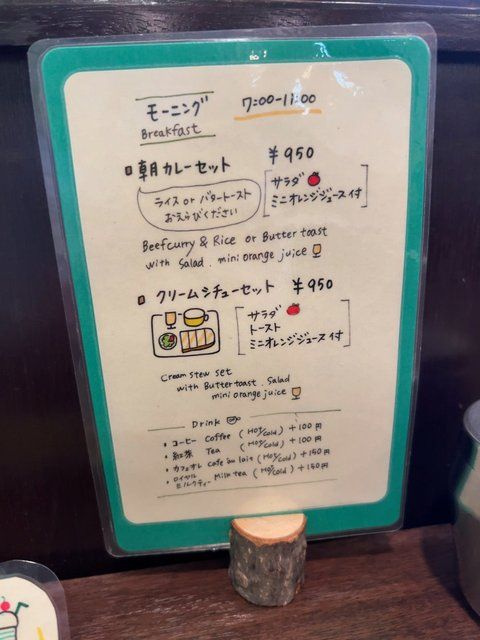 モーニング 7:00-11:00
Breakfast
朝カレーセット ¥950
ライス or バタートースト
おえらびください
サラダ
ミニオレンジジュース付
Beefcurry & Rice or Butter toast
with Salad. mini orange juice
クリームシチューセット ¥950
サラダ
トースト
ミニオレンジジュース付
Cream stew set
with Butter toast. Salad
mini orange juice
Drink
・コーヒー Coffee (Hot/Cold) +100円
・紅茶 Tea (Hot/Cold) +100円
・カフェオレ Cafe au lait (Hot/Cold) +150円
・ロイヤルミルクティー Milk tea (Hot/Cold) +150円